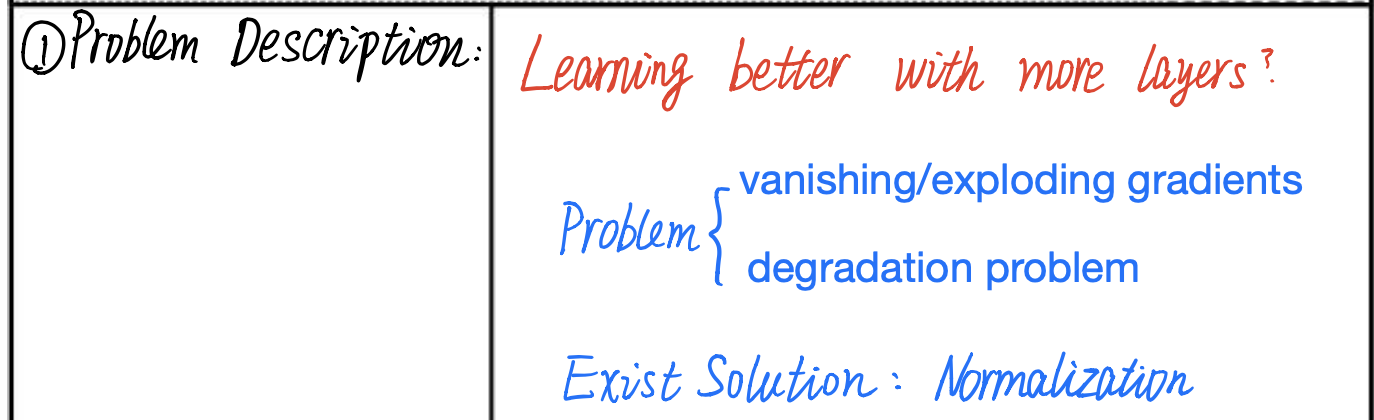 ①Problem Description:
Learning better with more layers?
vanishing/exploding gradients
Problem {
degradation problem
Exist Solution: Normalization